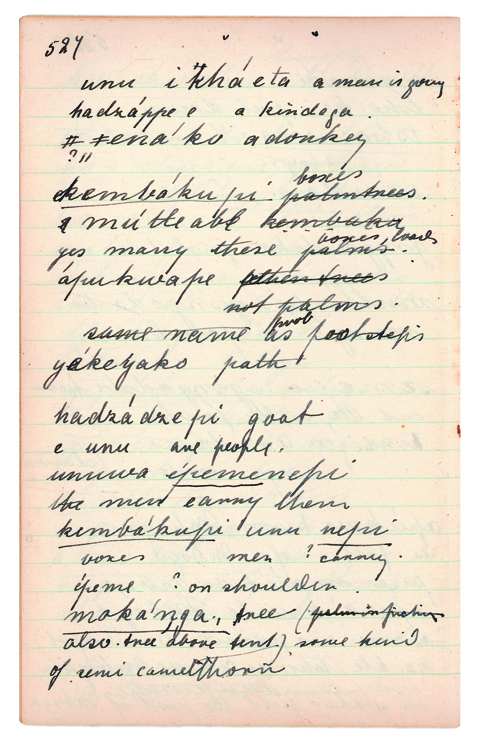 527
unu i ǂkháeta a man is going
hadzáppe e a kindoga.
ǂ ǂená'ko a donkey
? "
boxes
kembákupi palmtrees.
mútleabe kembaku
boxes, loads
yes many these palms.
ápukwape other trees
not palms
same name as footsteps
prob
yákeyako path
hadzádzepi goat
e unu are people.
unuwa épemenepi
the men carry them
kembákupi unu nepi
boxes men ? carry.
épeme ? on shoulder
moká'nga, tree (palm in fiction
also tree above tent) some kind
of semi camelthorn